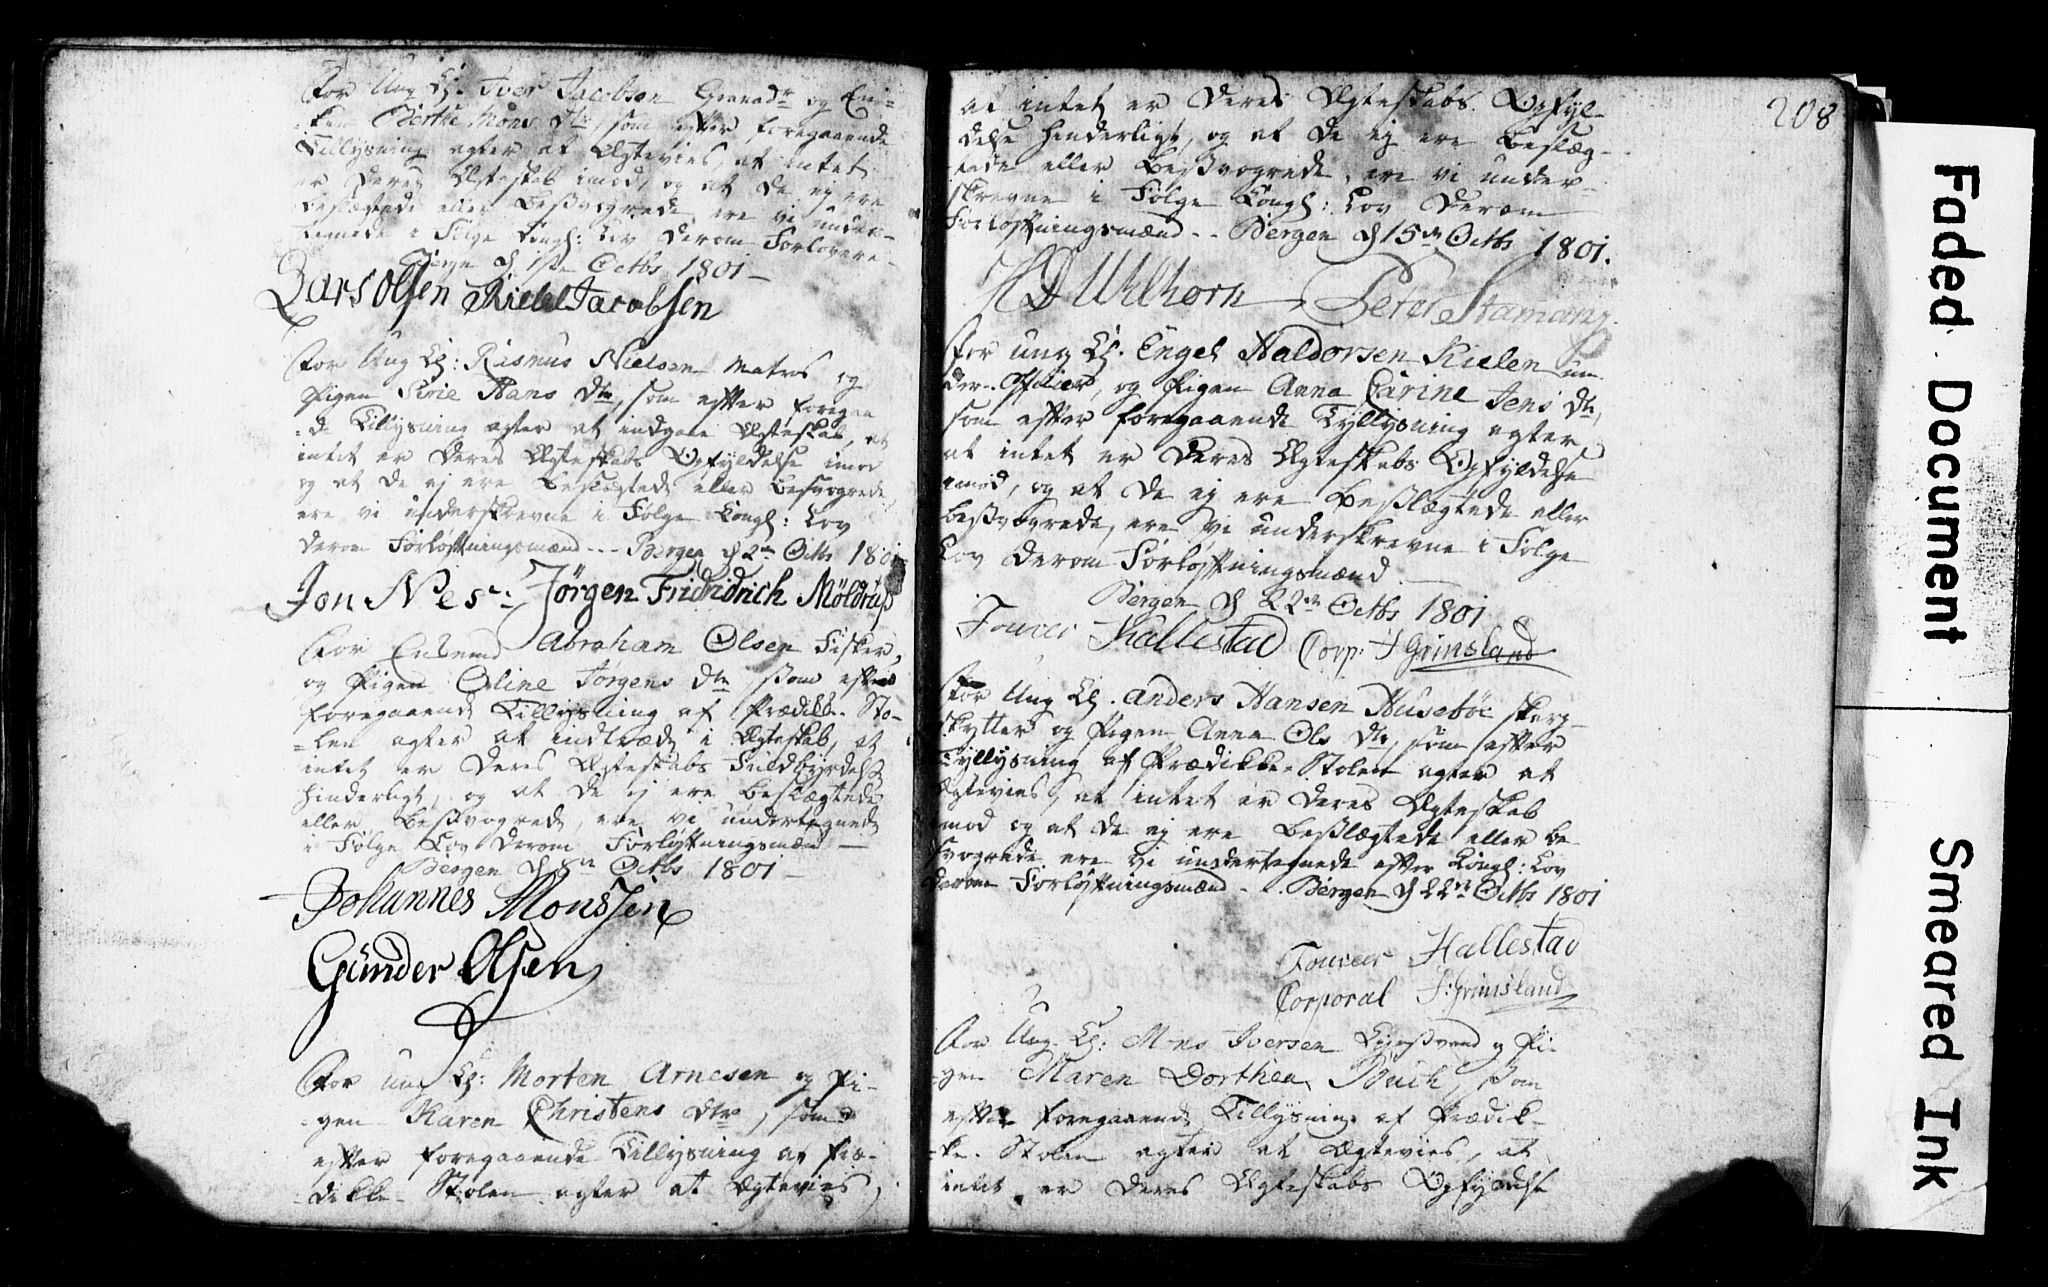 For Ung Kl: Iver Jacobsen Grenad:r og En-
-ken Berthe Mons Dtr, som efter foregaaende
Tillysning agter at Ægtevies, at intet
er Deres Ægteskab imod, og at de ej ere
beslægtede eller besvogrede, ere vi under-
tegnede i Følge Kongl: Lov derom Forlovere-
Bergen d 1ste Octbr 1801-
Lars Olsen Michel Jacobsen
For Ung Kl: Rasmus Nielsen Matros og
Pigen Sirie Hans Dtr, som efter foregaa
-de Tillysning agter at indgaae Ægteskab, at
intet er Deres Ægteskabs Opfyldelse imod
og at de ej ere beslægtede eller besvogrede,
ere vi underskrevne i Følge Kongl: Lov
derom Forløftningsmænd --- Bergen d 2den Octbr 1801
Jon Nes: Jørgen Fridridrich Möldrup
For Enkemd Abraham Olsen Fisker,
og Pigen Oline Jørgens Dtr som efter
foregaaende Tillysning af Prædike- Sto-
-len agter at indtræde i Ægteskab, at
intet er Deres Ægteskabs Fuldbyrdelse
hinderligt, og at de ej ere beslægtede
eller besvogrede, ere vi undertegnede
i Følge Lov derom Forløftningsmænd —
Bergen d 8de Octbr 1801 -
Johannes Monssen
Günder Olsen
For Ung Kl: Morten Arnesen og Pi-
-gen Karen Christens Dtr, som
efter foregaaende Tillysning af Præ-
-dikke- Stolen agter at Ægtevies,
208
at intet er Deres Ægteskabs Opfyl-
delse hinderligt, og at de ej ere beslæg-
-tede eller besvogrede, ere vi under-
skrevne i Følge Kongl: Lov derom
Forløftningsmænd -- Bergen d 15de Octbr 1801.
H D Uhlhorn Peter Stamang
For Ung Kl. Engel Haldorsen Kielen un
der- Officier, og Pigen Anna Carine Jens Dtr,
som efter foregaaende Tyllysning agter
at intet er Deres Ægteskabs Opfyldelse
imod, og at de ej ere beslægtede eller
besvogrede, ere vi underskrevne i Følge
Lov derom Forløftningsmænd
Bergen d 22de Octbr 1801
Fourer Hallestad Corp: J Grimsland
For Ung Kl. Anders Hansen Husebøe skarp-
skytter og Pigen Anna Ols Dtr, som efter
Tyllysning af Prædikke- Stolen agter at
Ægtevies, at intet er Deres Ægteskab
imod og at de ej ere beslægtede eller be
svogrede, ere vi undertegnede efter Kongl: Lov
derom Forløftningsmænd - . Bergen d 22de Octbr 1801
Foureer Hallestad
Corporal J: Grimsland
For Ung Kl: Mons Iversen og Pi-
-gen Maren Dorthea Buch, som
efter foregaaende Tillysning af Prædik-
-ke- Stolen agter at Ægtevies, at
intet er Deres Ægteskabs Opfyldelse
Faded Document
Smeared Ink